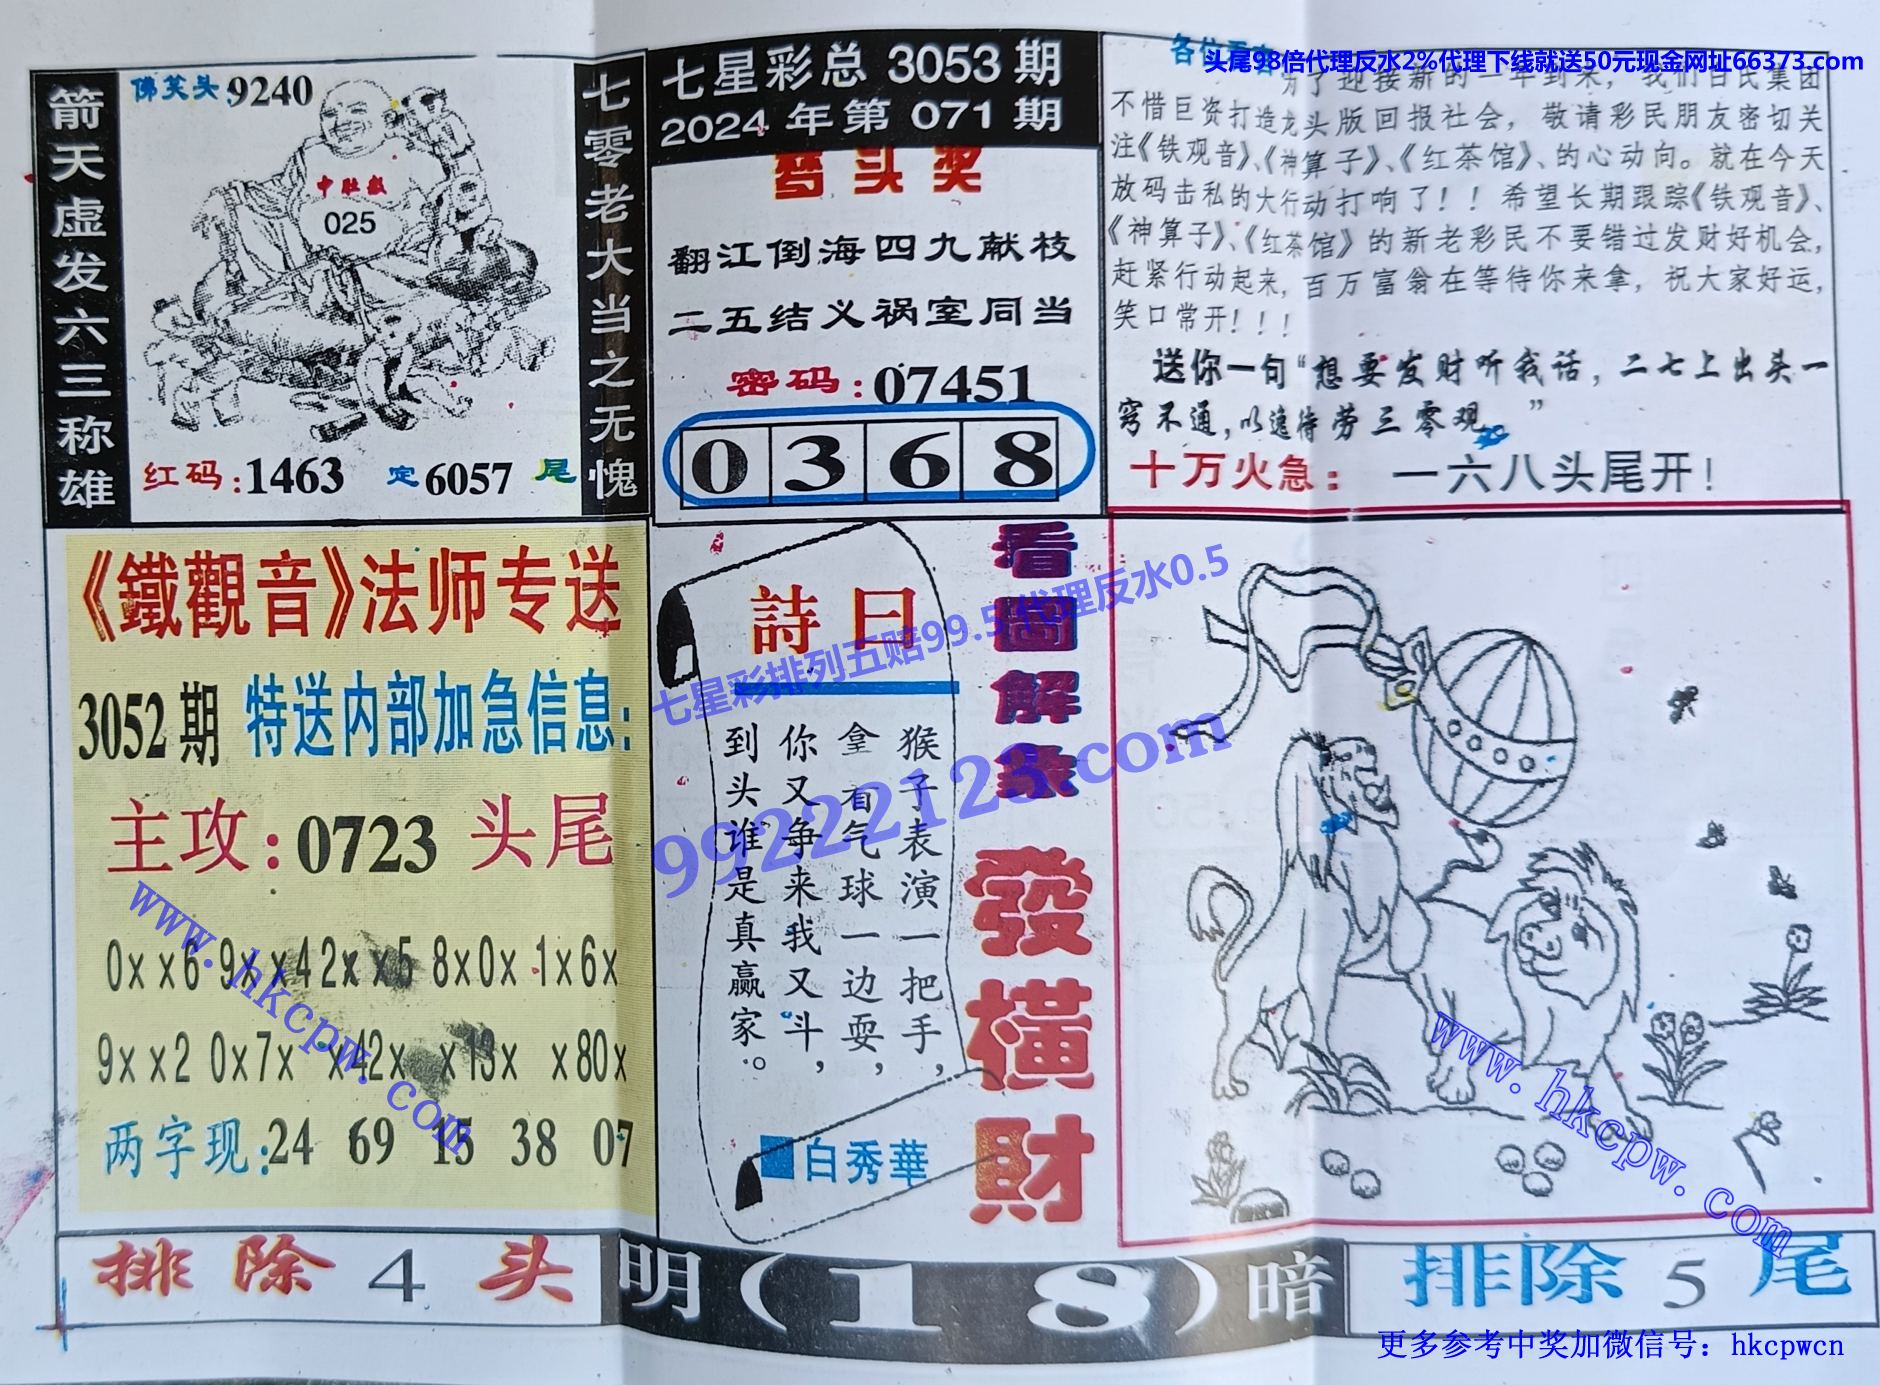 头尾98倍代理反水2%代理下线就送50元现金网址66373.com
箭天虚发六三称雄
佛笑头:9240
中肚数
025
红码:1463 定6057尾
七零老大当之无愧
七星彩总3053期
2024年第071期
梦头奖
翻江倒海四九献枝
二五结义祸室同当
密码:07451
0 3 6 8
为了迎接新的一年到来，我们百氏集团
不惜巨资打造龙头版回报社会，敬请彩民朋友密切关
注《铁观音》、《神算子》、《红茶馆》、的心动向。就在今天
放码击私的大行动打响了！！希望长期跟踪《铁观音》、
《神算子》、《红茶馆》的新老彩民不要错过发财好机会，
赶紧行动起来，百万富翁在等待你来拿，祝大家好运，
笑口常开！！！
送你一句“想要发财听我话，二七上出头一
窍不通，以逸待劳三零观。”
十万火急：一六八头尾开！
《鐵觀音》法师专送
3052期 特送内部加急信息:
主攻:0723头尾
0xx6 9xx4 2xx5 8x0x 1x6x
9xx2 0x7x x42x x19x x80x
两字现:24 69 15 38 07
詩曰
猴子表演一把手，
拿着气球一边耍，
你又争来我又斗，
到头谁是真赢家。
白秀華
看圖解象
發橫財
七星彩排列五赔99.5代理反水0.5
99222123.com
www.hkcpw.com
www.hkcpw.com
排除4头
明(18)暗
排除5尾
更多参考中奖加微信号：hkcpwcn